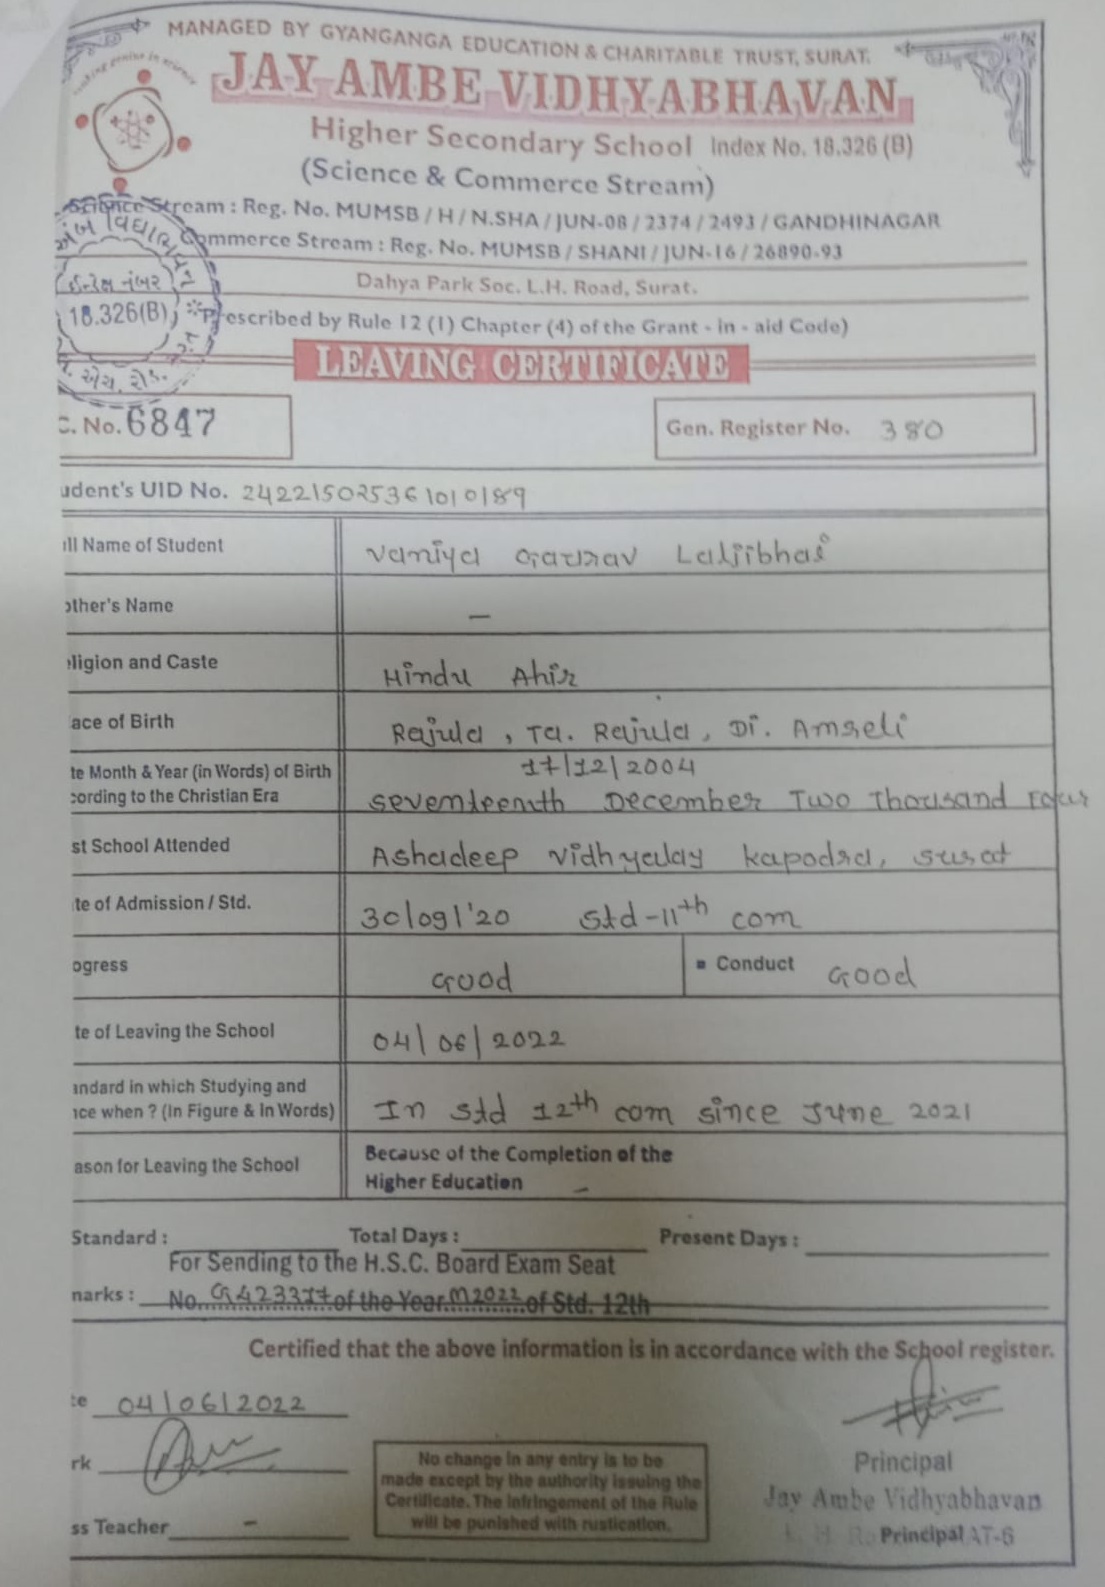 MANAGED BY GYANGANGA EDUCATION & CHARITABLE TRUST, SURAT.
JAY AMBE VIDHYABHAVAN
Higher Secondary School Index No. 18.326 (B)
(Science & Commerce Stream)
Science Stream : Reg. No. MUMSB / H / N.SHA / JUN-08 / 2374 / 2493 / GANDHINAGAR
Commerce Stream : Reg. No. MUMSB / SHANI / JUN-16 / 26890-93
Dahya Park Soc. L.H. Road, Surat.
ઈન્ડેક્ષ નંબર
18.326(B)
એચ. રોડ.
Prescribed by Rule 12 (1) Chapter (4) of the Grant - in - aid Code)
LEAVING CERTIFICATE
C. No. 6847
Gen. Register No. 380
udent's UID No. 242215025361010189
ull Name of Student Vaniya Gaurav Laljibhai
other's Name –
eligion and Caste Hindu Ahir
ace of Birth Rajula , Ta. Rajula , Di. Amreli
te Month & Year (in Words) of Birth 17/12/2004
cording to the Christian Era seventeenth December Two Thousand Four
st School Attended Ashadeep vidhyalay kapodra, surat
te of Admission / Std. 30/09/'20 Std-11th com
ogress Good Conduct Good
te of Leaving the School 04/06/2022
andard in which Studying and
nce when ? (In Figure & In Words) In std 12th com since June 2021
ason for Leaving the School Because of the Completion of the
Higher Education –
Standard : Total Days : Present Days :
For Sending to the H.S.C. Board Exam Seat
narks : No. G423317 of the Year M2022 of Std. 12th
Certified that the above information is in accordance with the School register.
te 04/06/2022
rk
ss Teacher –
No change in any entry is to be
made except by the authority issuing the
Certificate. The infringement of the Rule
will be punished with rustication.
Principal
Jay Ambe Vidhyabhavan
Principal